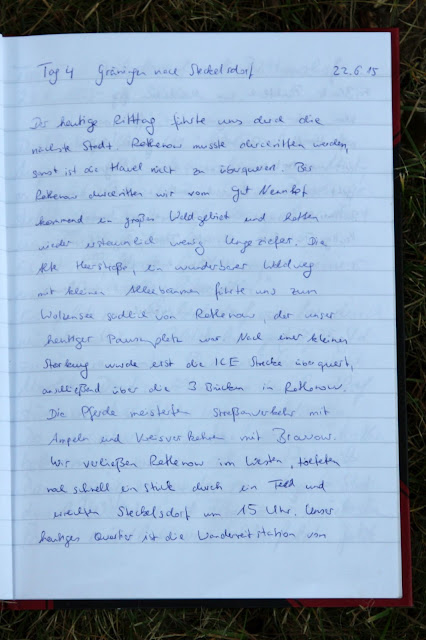 Tag 4 Gräningen nach Steckelsdorf 22.6.15
Der heutige Ritttag führte uns durch die
nächste Stadt. Rathenow musste durchritten werden,
sonst ist die Havel nicht zu überqueren. Bei
Rathenow durchritten wir vom Gut Nennhof
kommend ein großes Waldgebiet und hatten
wieder erstaunlich wenig Ungeziefer. Die
Alte Heerstraße, ein wunderbarer Waldweg
mit kleinen Alleebäumen führte uns zum
Wolzensee südlich von Rathenow, der unser
heutiger Pausenplatz war. Nach einer kleinen
Stärkung wurde erst die ICE Strecke überquert,
anschließend über die 3 Brücken in Rathenow.
Die Pferde meisterten Straßenverkehr mit
Ampeln und Kreisverkehren mit Bravour.
Wir verließen Rathenow im Westen, trabten
mal schnell ein Stück durch ein Feld und
erreichten Steckelsdorf um 15 Uhr. Unser
heutiges Quartier ist die Wanderreitstation von